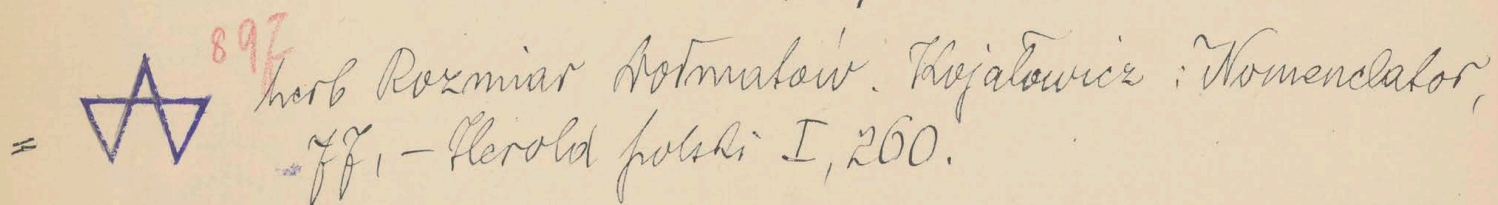 897
herb Rozmiar Dołmatów. Kojałowicz: Nomenclator,
= 77, – Herold polski I, 260.